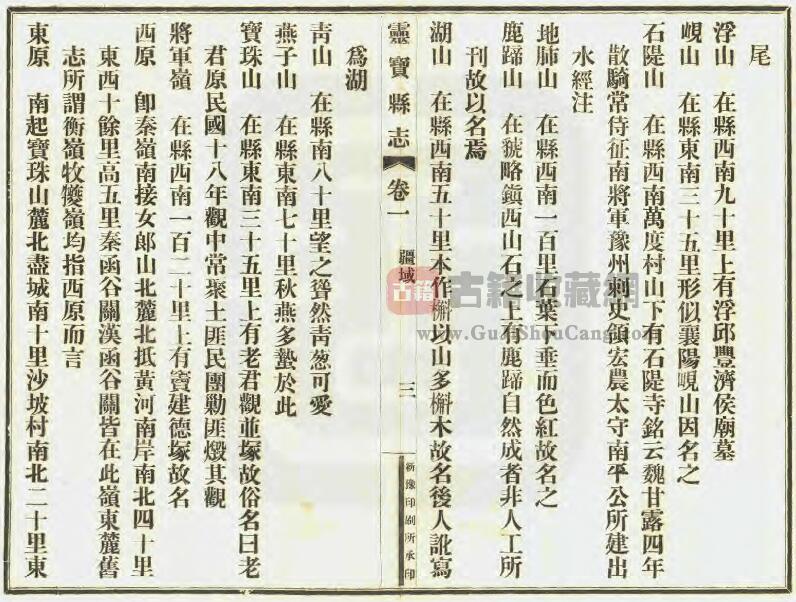 尾
浮山　在縣西南九十里上有浮邱豐濟侯廟墓
峴山　在縣東南三十五里形似襄陽峴山因名之
石隄山　在縣西南萬度村山下有石隄寺銘云魏甘露四年
散騎常侍征南將軍豫州刺史領宏農太守南平公所建出
水經注
地肺山　在縣西南一百里石葉下垂而色紅故名之
鹿蹄山　在虢略鎭西山石之上有鹿蹄自然成者非人工所
刊故以名焉
湖山　在縣西南五十里本作槲以山多槲木故名後人訛寫
靈寶縣志　卷一　疆域　三　新豫印刷所承印
爲湖
靑山　在縣南八十里望之聳然靑葱可愛
燕子山　在縣東南七十里秋燕多蟄於此
寶珠山　在縣東南三十五里上有老君觀並塚故俗名曰老
君原民國十八年觀中常聚土匪民團勦匪燬其觀
將軍嶺　在縣西南一百二十里上有竇建德塚故名
西原　卽秦嶺南接女郞山北麓北抵黃河南岸南北四十里
東西十餘里高五里秦函谷關漢函谷關皆在此嶺東麓舊
志所謂衡嶺牧㹛嶺均指西原而言
東原　南起寶珠山麓北盡城南十里沙坡村南北二十里東
古籍
古籍收藏網
www.GuJiShouCang.com